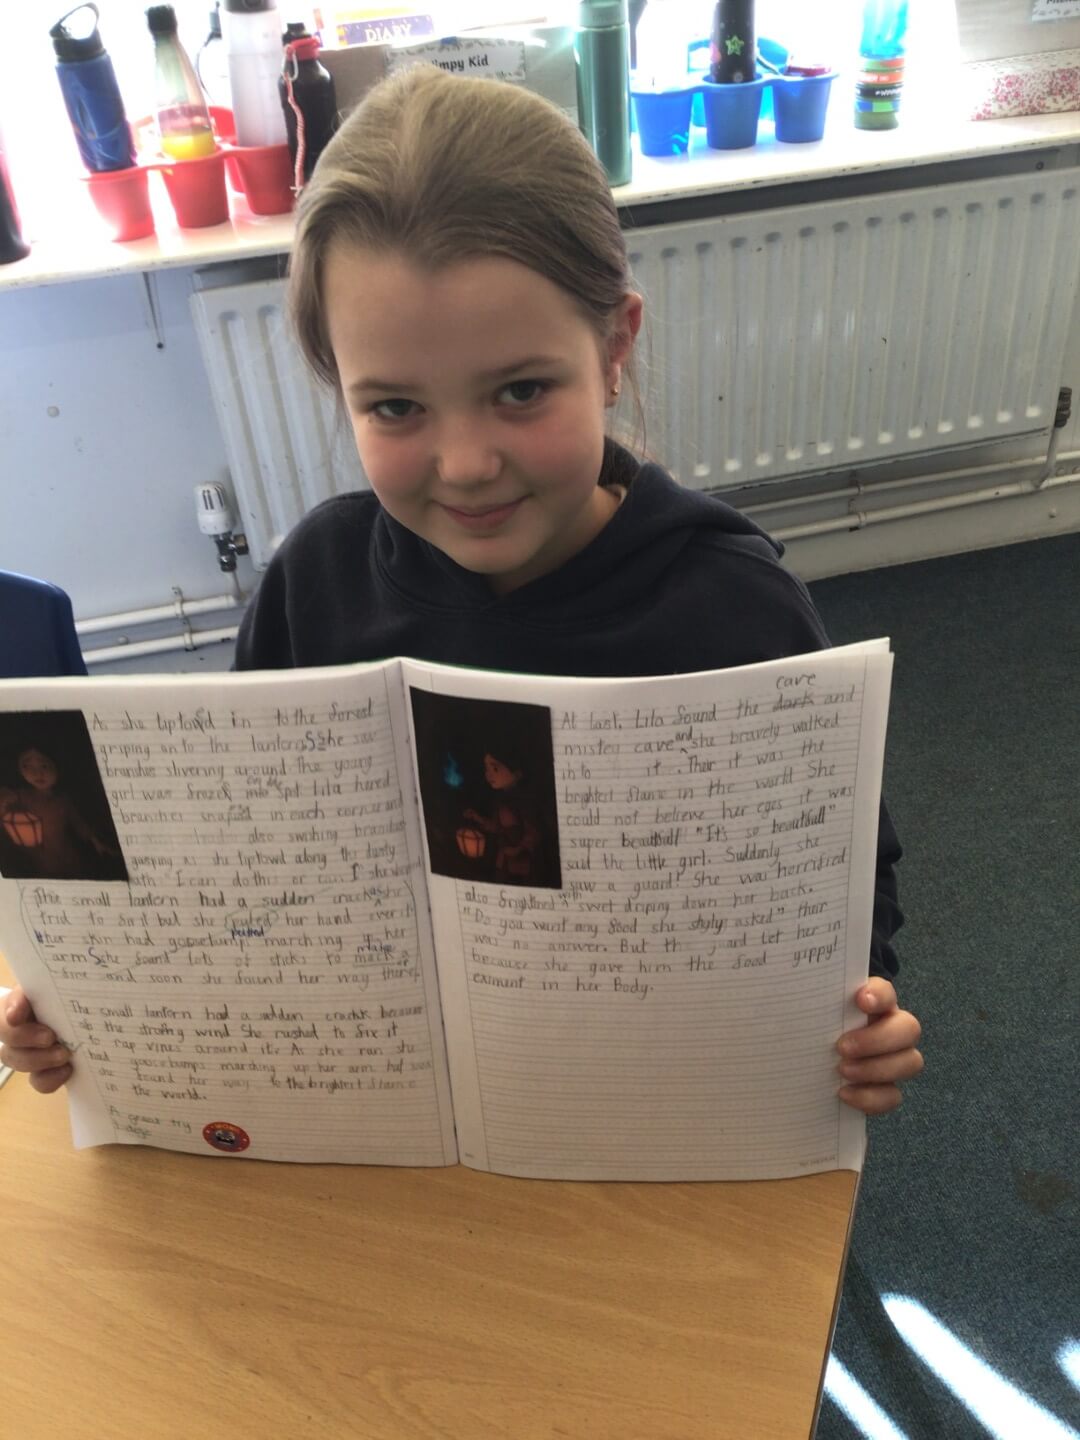 DIARY
Wimpy Kid
As she tiptowd in to the forest
griping on to the lantern. She saw
branchis slivering around The young
girl was frozen on the spot lila hered
branches in each corner and
also swshing branchis
gasping as she tiptowd along the dusty
path "I can do this or can I" she
The small lantern had a sudden crack as she
trid to so it but she puted her hand over it
putted
her skin had goosebumps marching up her
arm She found lots of sticks to mack a
make
fire and soon she found her way there
The small lantern had a sudden crackk because
ob the strong wind She rushed to fix it
to rap vines around it. As she ran she
had goosebumps marching up her arm but soon
she found her way to the brightest flame
in the world.
A great try
WOW!
cave
At last, Lila found the dark and
mistey cave and she bravely walked
into it. Their it was the
brightest flame in the world She
could not believe her eyes it was
super beautifull "It's so beautifull"
said the little girl. Suddenly she
saw a guard! She was horrified
also frightened with swet driping down her back.
"Do you want any food she shyly asked" their
was no answer. But the guard let her in
because she gave him the food yippy!
eximent in her Body.